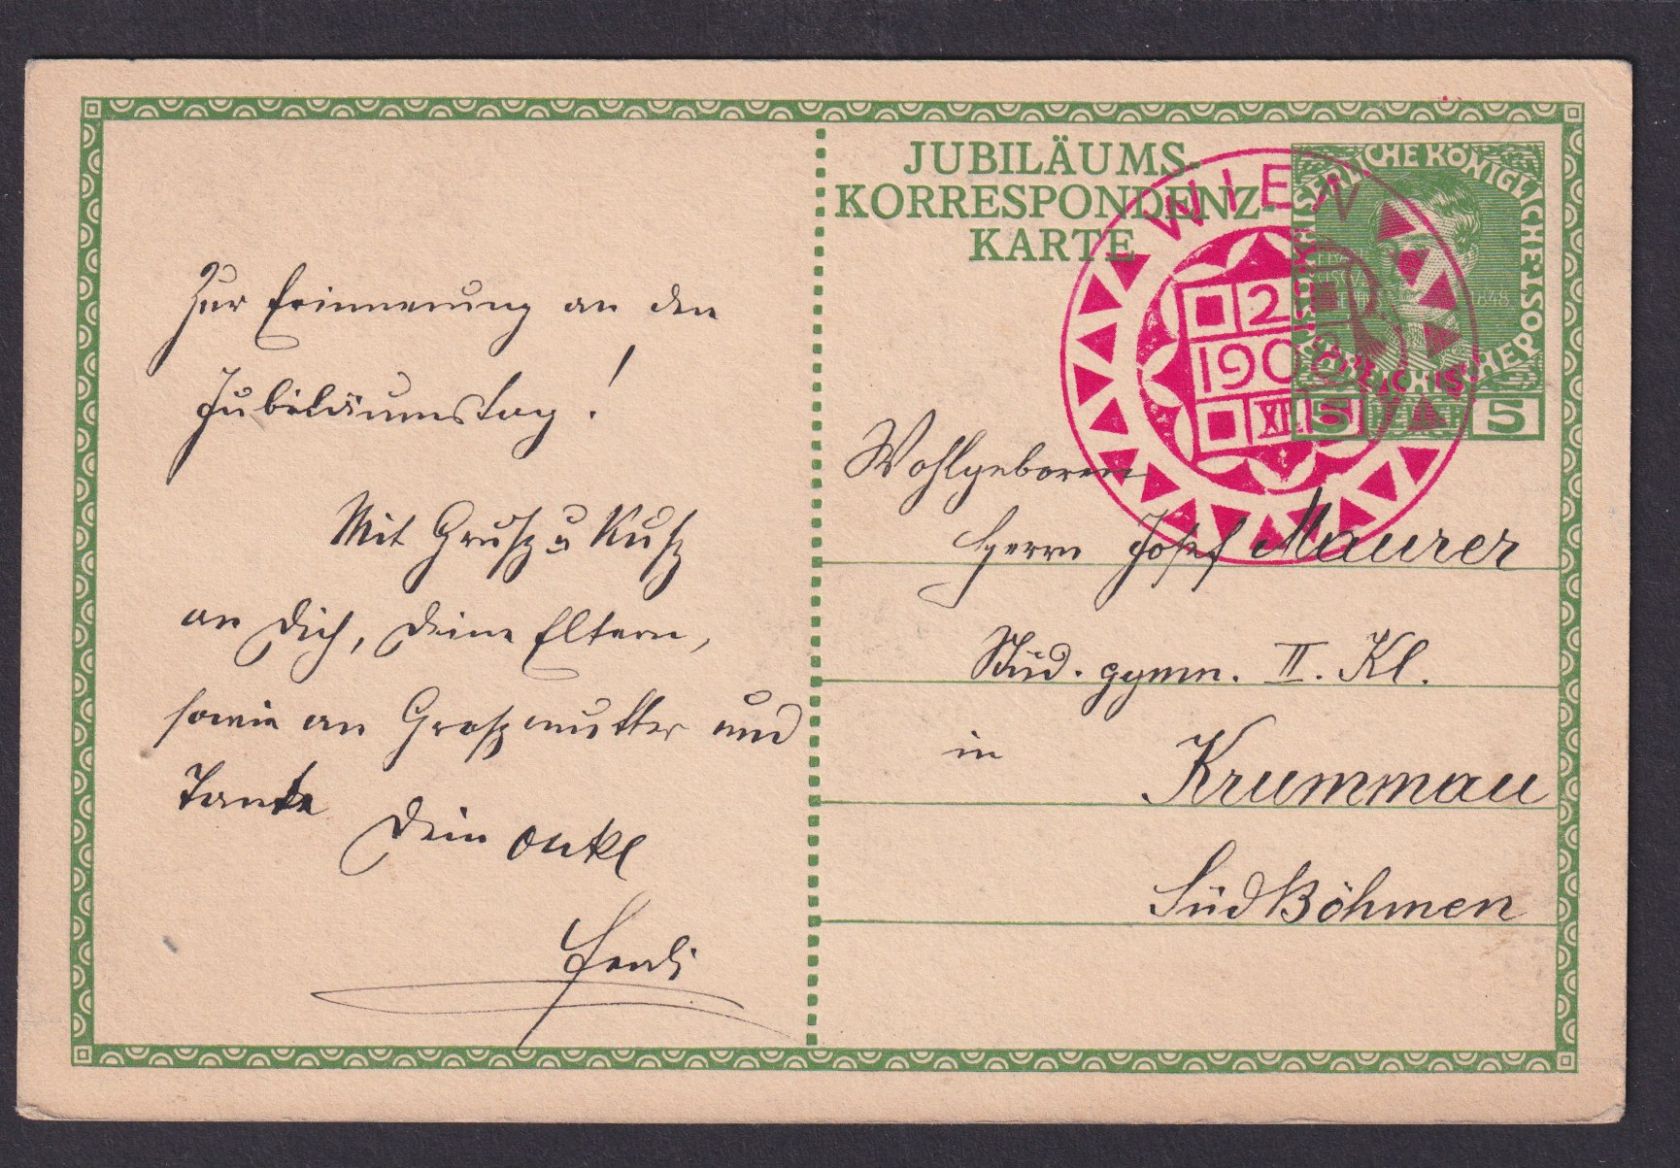 Zur Erinnerung an den
Jubiläumstag!
Mit Gruß u Kuß
an Dich, Deine Eltern,
sowie an Großmutter und
Tante
Dein Onkel
JUBILÄUMS-
KORRESPONDENZ-
KARTE
WIEN
2
190
XII
KÖNIGLICHE
1848
5 5
Wohlgeboren
Herrn Josef Maurer
Stud. gymn. II. Kl.
in Krummau
SüdBöhmen